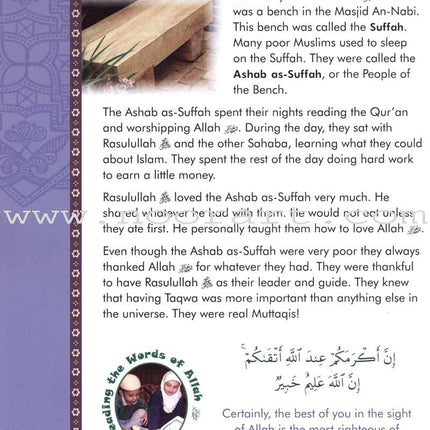 was a bench in the Masjid An-Nabi.
This bench was called the Suffah.
Many poor Muslims used to sleep
on the Suffah. They were called the
Ashab as-Suffah, or the People of
the Bench.
The Ashab as-Suffah spent their nights reading the Qur'an
and worshipping Allah. During the day, they sat with
Rasulullah ﷺ and the other Sahaba, learning what they could
about Islam. They spent the rest of the day doing hard work
to earn a little money.
Rasulullah ﷺ loved the Ashab as-Suffah very much. He
shared whatever he had with them. He would not eat unless
they ate first. He personally taught them how to love Allah.
Even though the Ashab as-Suffah were very poor they always
thanked Allah for whatever they had. They were thankful
to have Rasulullah ﷺ as their leader and guide. They knew
that having Taqwa was more important than anything else in
the universe. They were real Muttaqis!
إِنَّ أَكْرَمَكُمْ عِندَ اللَّهِ أَتْقَىٰكُمْ ۚ
إِنَّ اللَّهَ عَلِيمٌ خَبِيرٌ
Reading the Words of Allah
Certainly, the best of you in the sight
of Allah is the most righteous of